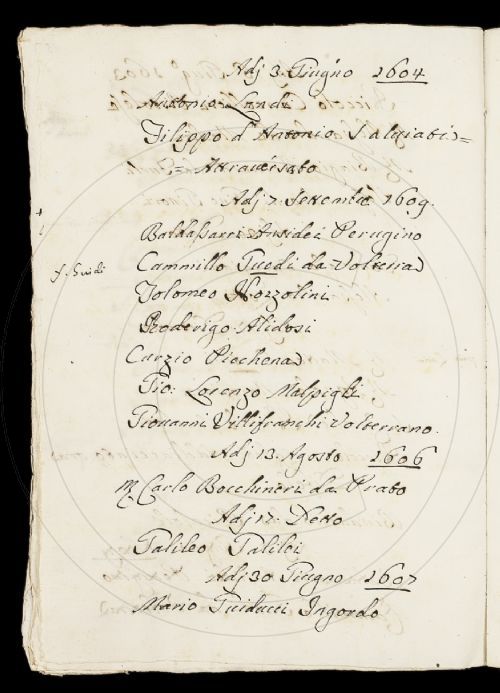 Adj 3. Giugno 1604
Antonio Landi
Filippo d' Antonio Salviati =
= Attraversato
Adj 7. Settembre 1609.
Baldassarri Ansidei Perugino
Cammillo Guidi da Volterra
Tolomeo Nozzolini
Roderigo Alidosi
Curzio Picchena
Gio: Lorenzo Malpigli
Giovanni Villifranchi Volterrano.
Adj 13. Agosto 1606
Carlo Bocchineri da Prato
Adj 17. Detto
Galileo Galilei
Adj 30 Giugno 1607
Mario Guiducci Ingordo